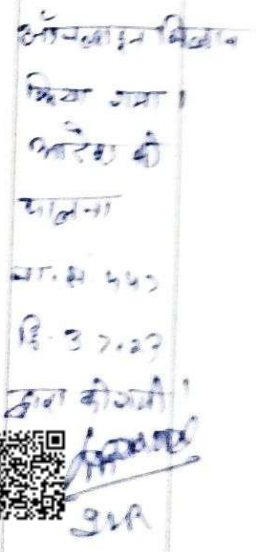 ऑनलाइन मिलान
किया गया।
आदेश की
पालना
ना.स. 443
दि. 3 7.23
द्वारा की गयी।